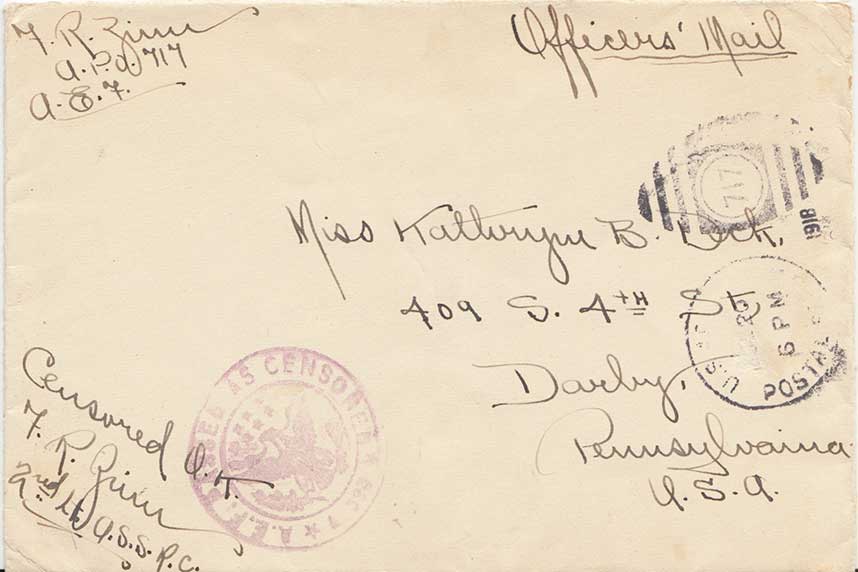 F. R. Zinn
A.P.O. 717
A.E.F.
Officers' Mail
717
1918
Miss Kathryne B. Lock,
409 S. 4TH St,
Darby,
Pennsylvaina
U.S.A.
6 PM
POSTAL
Censored O.K.
F. R. Zinn
2nd Lt. A.S.S. P.C.
A.E.F. PASSED AS CENSORED